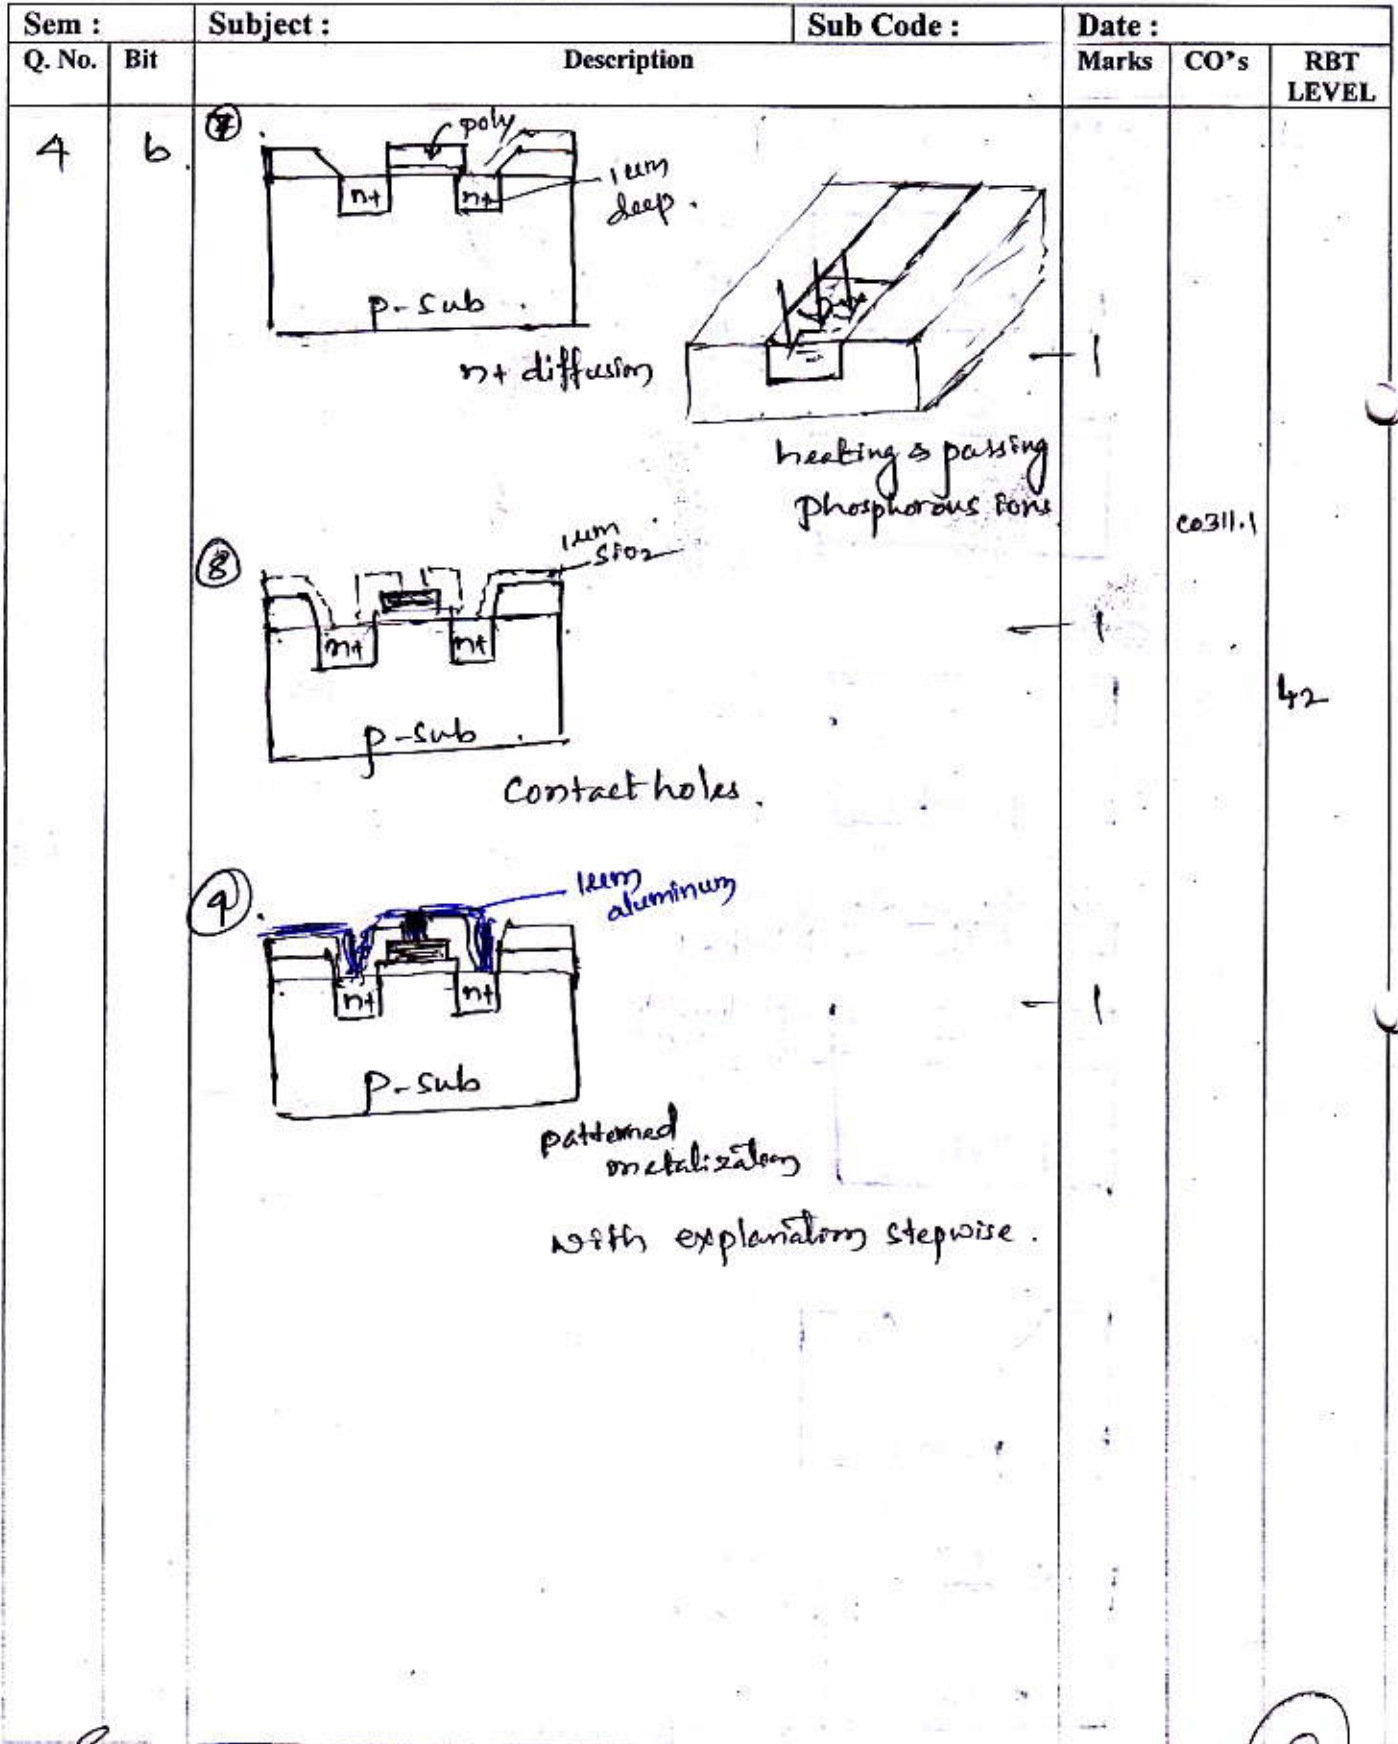 Sem : Subject : Sub Code : Date :
Q. No. Bit Description Marks CO's RBT LEVEL
4 b.
7
poly
n+ n+
1 um
deep.
p-sub
n+ diffusion
1
heating & passing
Phosphorous ions
CO311.1
8
1um
SiO2
n+ n+
1
p-sub
L2
Contact holes.
9
1um
aluminum
n+ n+
1
p-sub
patterned
metalization
with explanation stepwise.